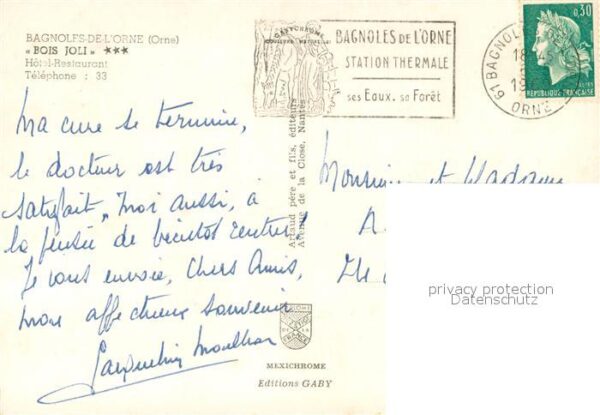 BAGNOLES-DE-L'ORNE (Orne)
« BOIS JOLI » ★★★
Hôtel-Restaurant
Téléphone : 33
Ma cure se termine,
le docteur est très
satisfait, moi aussi, à
la pensée de bientôt rentrer,
Je vous envoie, Chers Amis,
mon affectueux souvenir
Jacqueline
BAGNOLES DE L'ORNE
STATION THERMALE
ses Eaux. sa Forêt
61 BAGNOL
18
19
ORNE
0,30
REPUBLIQUE FRANÇAISE
Artaud père et fils, éditeurs
Avenue de la Close, Nantes
Monsieur et Madame
privacy protection
Datenschutz
MEXICHROME
Editions GABY